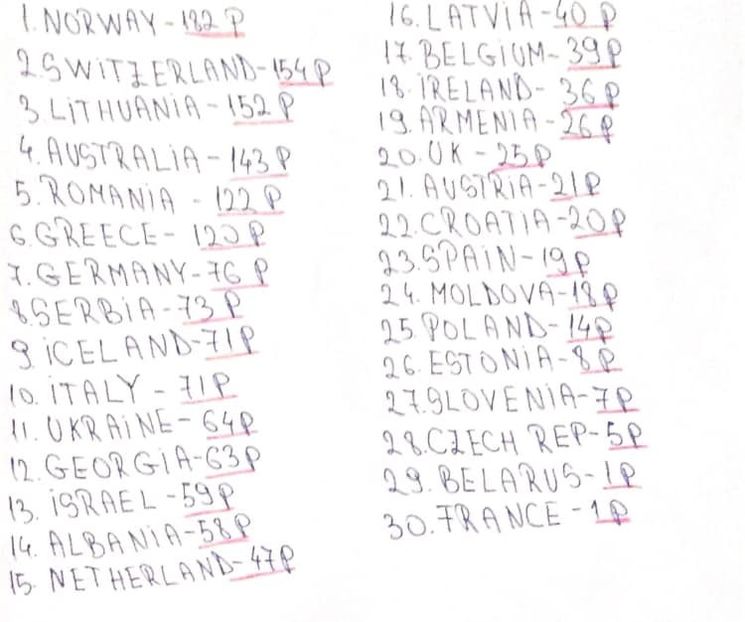 1. NORWAY - 182 P
2. SWITZERLAND - 154 P
3. LITHUANIA - 152 P
4. AUSTRALIA - 143 P
5. ROMANIA - 122 P
6. GREECE - 120 P
7. GERMANY - 76 P
8. SERBIA - 73 P
9. ICELAND - 71 P
10. ITALY - 71 P
11. UKRAINE - 64 P
12. GEORGIA - 63 P
13. ISRAEL - 59 P
14. ALBANIA - 58 P
15. NETHERLAND - 47 P
16. LATVIA - 40 P
17. BELGIUM - 39 P
18. IRELAND - 36 P
19. ARMENIA - 26 P
20. UK - 25 P
21. AUSTRIA - 21 P
22. CROATIA - 20 P
23. SPAIN - 19 P
24. MOLDOVA - 18 P
25. POLAND - 14 P
26. ESTONIA - 8 P
27. SLOVENIA - 7 P
28. CZECH REP - 5 P
29. BELARUS - 1 P
30. FRANCE - 1 P